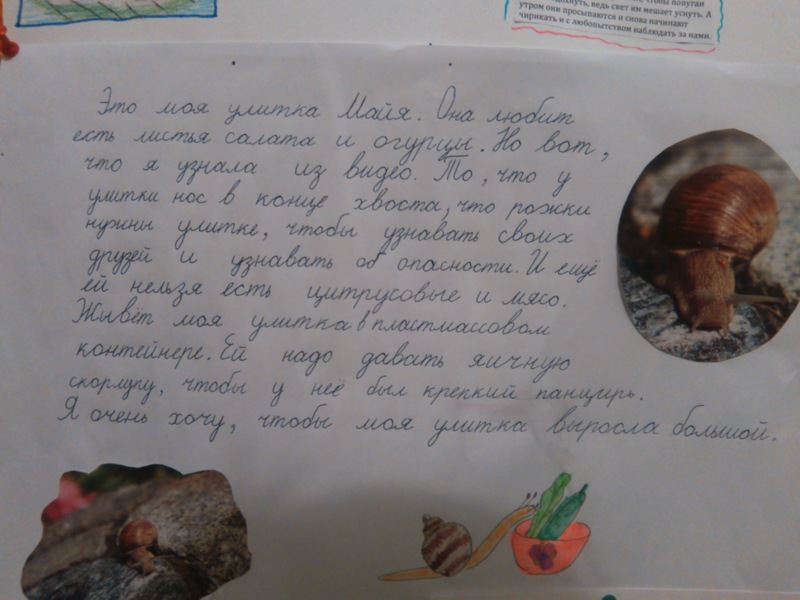 чтобы попугаи
дохнуть, ведь свет им мешает уснуть. А
утром они просыпаются и снова начинают
чирикать и с любопытством наблюдать за нами.
Это моя улитка Майя. Она любит
есть листья салата и огурцы. Но вот,
что я узнала из видео. То, что у
улитки нос в конце хвоста, что рожки
нужны улитке, чтобы узнавать своих
друзей и узнавать об опасности. И ещё
ей нельзя есть цитрусовые и мясо.
Живёт моя улитка в пластмассовом
контейнере. Ей надо давать яичную
скорлупу, чтобы у неё был крепкий панцирь.
Я очень хочу, чтобы моя улитка выросла большой.